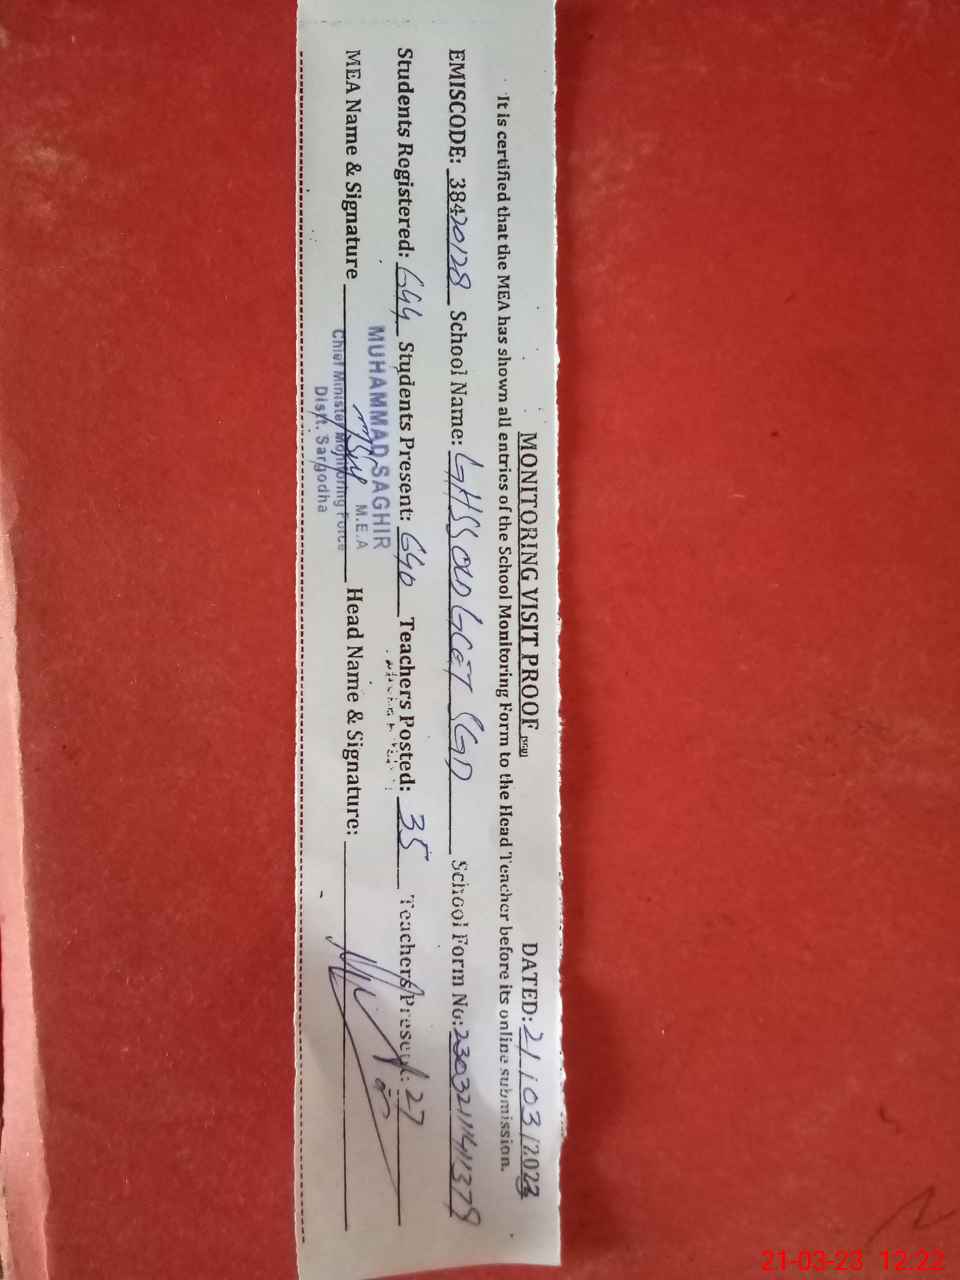 MONITORING VISIT PROOF
DATED: 21/03/2023
It is certified that the MEA has shown all entries of the School Monitoring Form to the Head Teacher before its online submission.
EMISCODE: 38420128 School Name: GHSS OLD GCET SGD School Form No:
Students Rogistered: 644 Students Present: Teachers Posted: 35 Teachers Present: 27
MEA Name & Signature Head Name & Signature:
MUHAMMAD SAGHIR
M.E.A
Chief Minister Monitoring Force
Distt. Sargodha
21-03-23 12:22